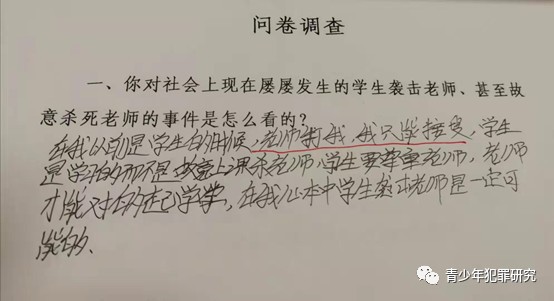 问卷调查
一、你对社会上现在屡屡发生的学生袭击老师、甚至故
意杀死老师的事件是怎么看的？
在我以前是学生的时候，老师打我，我只能接受，学生
是学习的而不是故意上课杀老师，学生要尊重老师，老师
才能对的起学，在我心本中学生袭击老师是一定可
能的、
青少年犯罪研究